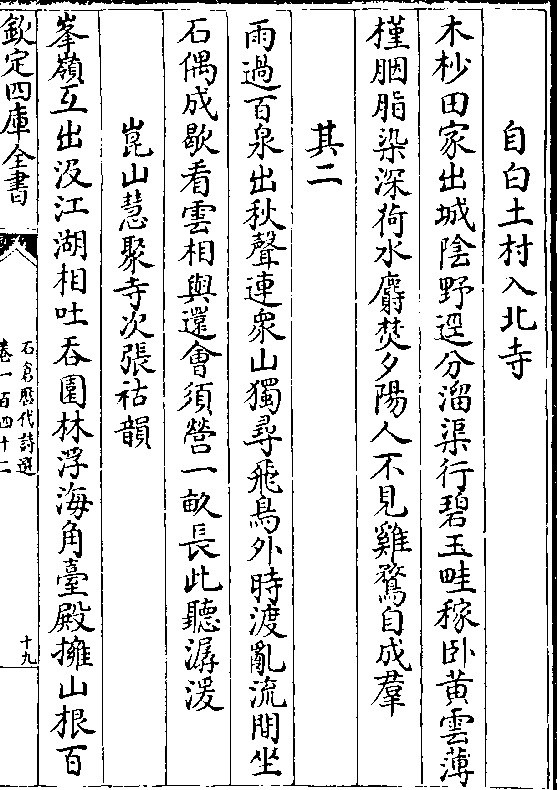 自白土村入北寺
木杪田家出城陰野逕分溜渠行碧玉畦稼卧黄雲薄
槿胭脂染深荷水麝焚夕陽人不見雞鶩自成羣
其二
雨過百泉出秋聲連衆山獨尋飛鳥外時渡亂流間坐
石偶成歇看雲相與還會須營一畝長此聽潺湲
崑山慧聚寺次張祜韻
峯嶺互出没江湖相吐吞園林浮海角臺殿擁山根百
欽定四庫全書
石倉歷代詩選
卷一百四十二
十九